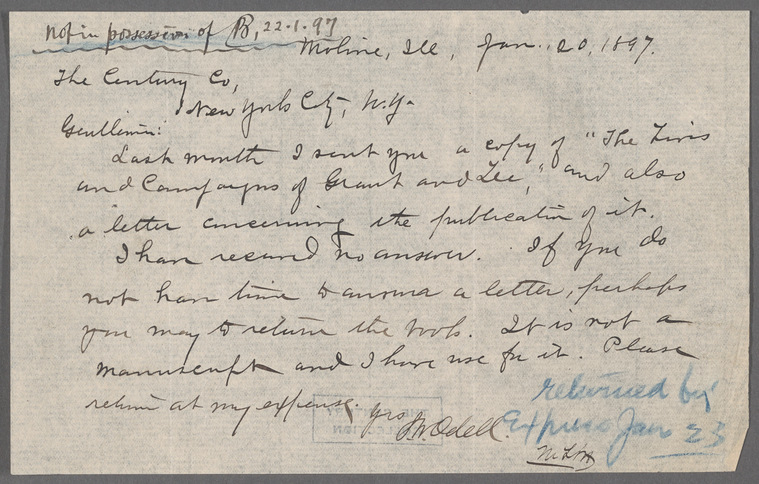 Not in possession of B, 22-1-97
Moline, Ill, Jan. 20, 1897.
The Century Co,
New York City, N.Y.
Gentlemen:
Last month I sent you a copy of "The Lives
and Campaigns of Grant and Lee," and also
a letter concerning the publication of it.
I have received no answer. If you do
not have time to answer a letter, perhaps
you may to return the book. It is not a
manuscript and I have use for it. Please
return at my expense. Yrs
Odell.
returned by
Express Jan 23